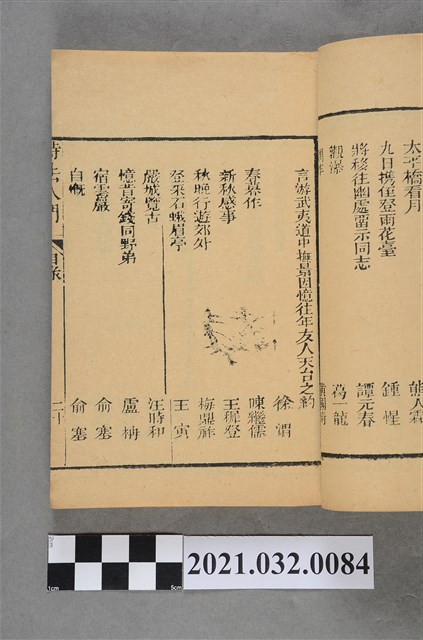 太平橋看月
九日携隹登雨花臺 鍾惺
將移往幽處留示同志 譚元春
觀瀑 爲一龍
言游武夷道中撫景因憶往年友人天台之約 徐渭
春暮作 陳繼儒
新秋感事 王穉登
秋晚行遊郊外 梅鼎祚
登采石蛾眉亭 王寅
嚴城覽古 汪時和
憶昔寄錢同野弟 盧柟
宿雲巖 俞塞
自慨 俞塞
目錄
二十
2021.032.0084
1cm
5cm